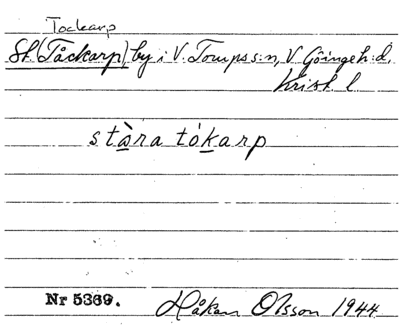 Tockarp
St. (Tåckarp) by i V. Torups s:n, V. Göinge h:d,
Krist. l
stàra tókarp
Nr 5369. Håkan Olsson 1944